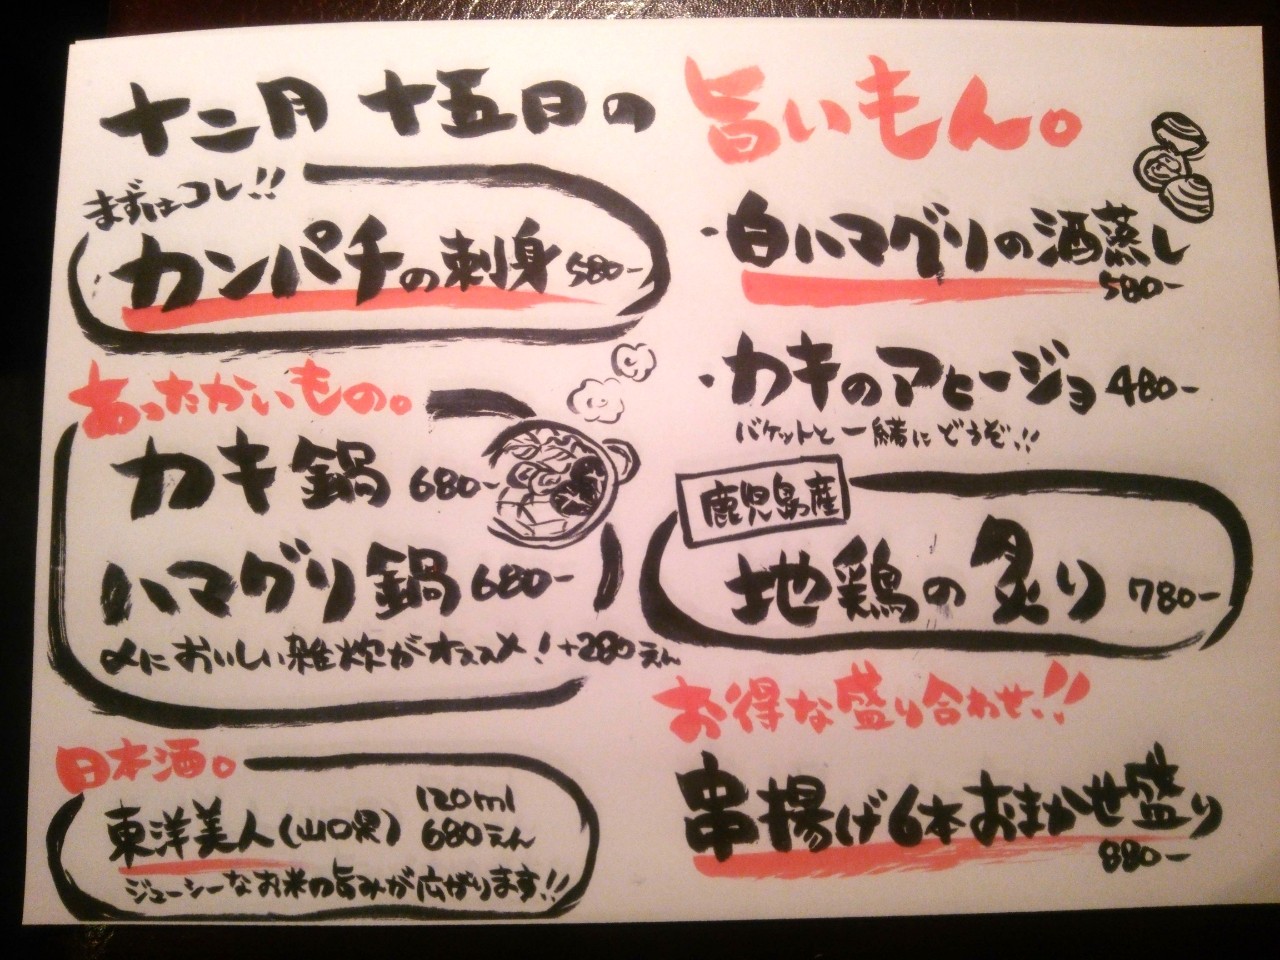 十二月 十五日の 旨いもん。
まずはコレ!!
カンパチの刺身 580-
あったかいもの。
カキ鍋 680-
ハマグリ鍋 680-
〆においしい雑炊がオススメ!+280えん
日本酒。
東洋美人(山口県) 120ml 680えん
ジューシーなお米の旨みが広がります!!
・白ハマグリの酒蒸し
580-
・カキのアヒージョ 480-
バケットと一緒にどうぞ!!
鹿児島産
地鶏の炙り 780-
お得な盛り合わせ!!
串揚げ6本おまかせ盛り
880-